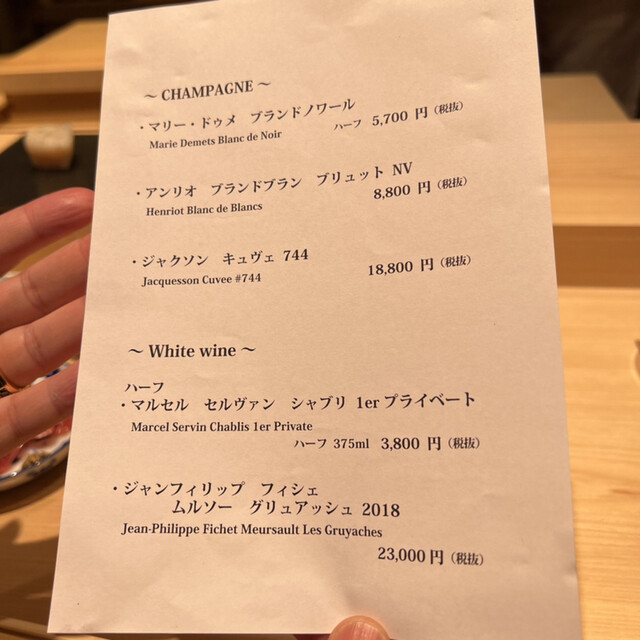 ～ CHAMPAGNE ～
・マリー・ドゥメ　ブランドノワール
Marie Demets Blanc de Noir
ハーフ 5,700 円（税抜）
・アンリオ　ブランドブラン　ブリュット NV
Henriot Blanc de Blancs
8,800 円（税抜）
・ジャクソン　キュヴェ 744
Jacquesson Cuvee #744
18,800 円（税抜）
～ White wine ～
ハーフ
・マルセル　セルヴァン　シャブリ 1er プライベート
Marcel Servin Chablis 1er Private
ハーフ 375ml 3,800 円（税抜）
・ジャンフィリップ　フィシェ
ムルソー　グリュアッシュ 2018
Jean-Philippe Fichet Meursault Les Gruyaches
23,000 円（税抜）